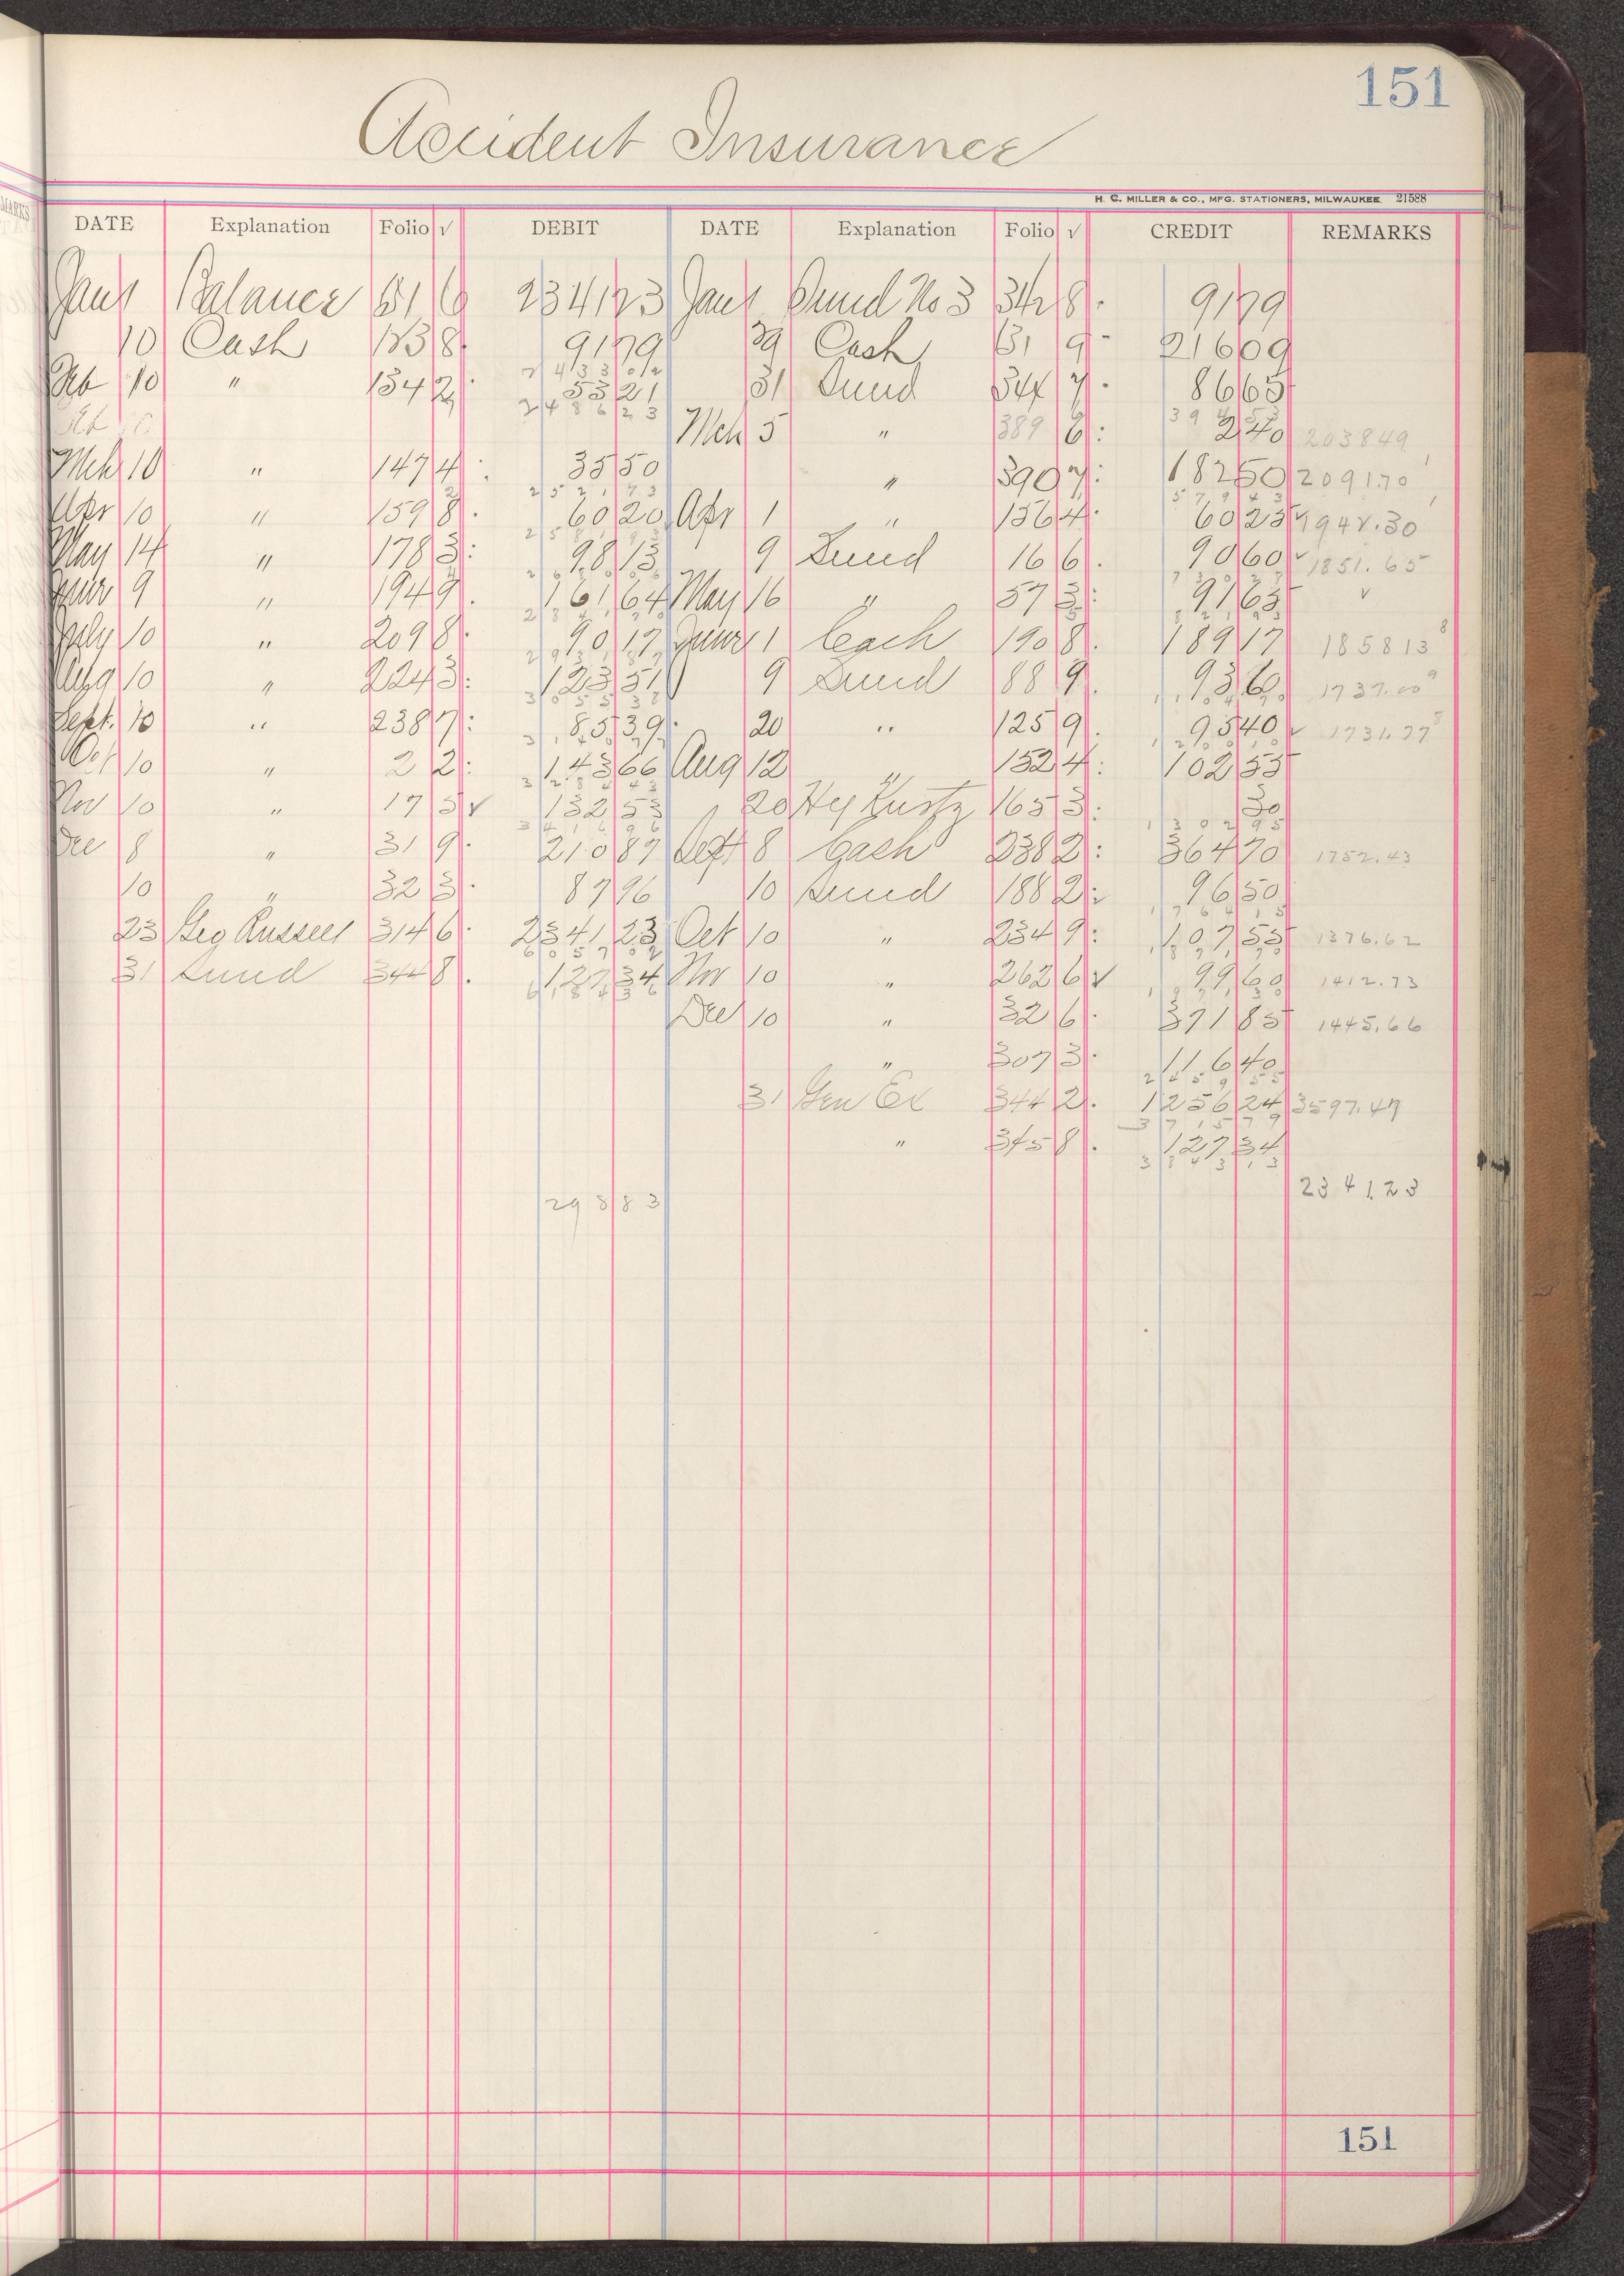 151
Accident Insurance
H. C. MILLER & CO., MFG. STATIONERS, MILWAUKEE 21588
DATE Explanation Folio √ DEBIT DATE Explanation Folio √ CREDIT REMARKS
Jan 1 Balance 51 6 2341 23 Jan 1 Sund No 3 34 8 91 79
10 Cash 123 8 91 79 Cash 31 9 216 09
2433 02
Feb 10 " 134 2 53 21 31 Sund 344 7 86 65
2486 23
Mch 5 " 389 6 2 40 2038 49
Mch 10 " 147 4 35 50 " 390 7 182 50 2091.70
2521 73 579 43
Apr 10 " 159 8 60 20 Apr 1 " 156 4 60 23
May 14 " 178 3 98 13 9 Sund 16 6 90 60 1851.65
9 " 194 9 161 64 May 16 " 57 3 91 63
July 10 " 209 8 90 17 June 1 Cash 190 8 189 17 1858 13
Aug 10 " 224 3 123 51 9 Sund 88 9 93 60 1737.00
Sept. 10 " 238 7 85 39 20 " 125 9 95 40 1731.77
Oct 10 " 2 2 143 66 Aug 12 " 152 4 102 55
Nov 10 " 17 5 √ 132 53 20 165 3 30
3416 96 1302 95
Dec 8 " 31 9 210 87 Sept 8 Cash 238 2 364 70 1752.43
10 " 32 3 87 96 10 Sund 188 2 96 50
23 Geo Russell 314 6 2341 23 Oct 10 " 234 9 107 55 1376.62
6057 02
31 Sund 344 8 127 34 Nov 10 " 262 6 √ 99 60 1412.73
6184 36
Dec 10 " 32 6 371 85 1445.66
" 307 3 116 40
2459 55
31 Gen Ex 344 2 1256 24 3597.47
3715 79
" 345 8 127 34
3843 13
2341.23
298 83
151